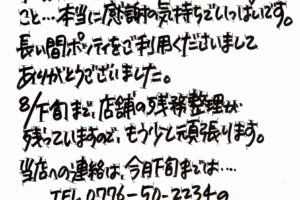 こと…本当に感謝の気持ちでいっぱいです。
長い間ポシティをご利用くださいまして
ありがとうございました。
8/下旬まで、店舗の残務整理が
残っていますので、もう少し頑張ります。
当店への連絡は、今月下旬までは‥‥
TEL 0776-50-2234の